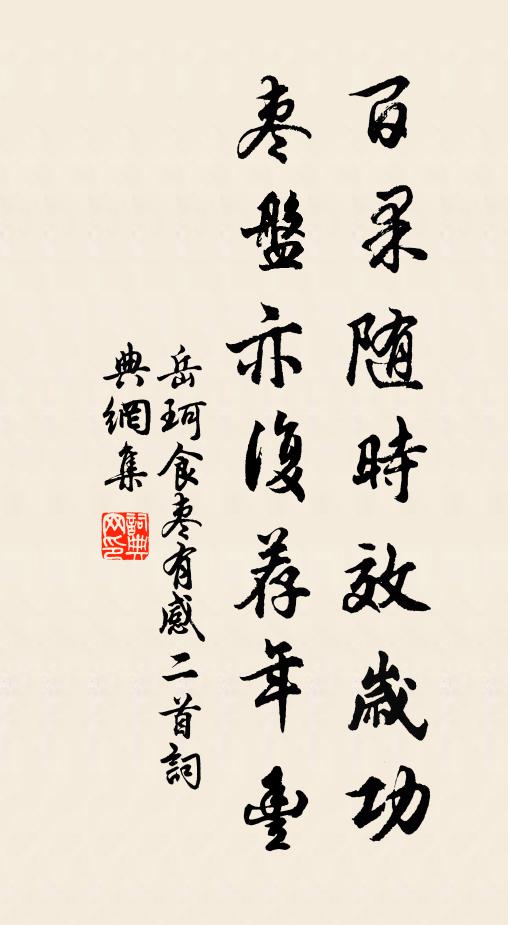 百果随時效歲功
枣盤亦復荐年豐
岳珂食枣有感二首詞
典網集
詞典网印